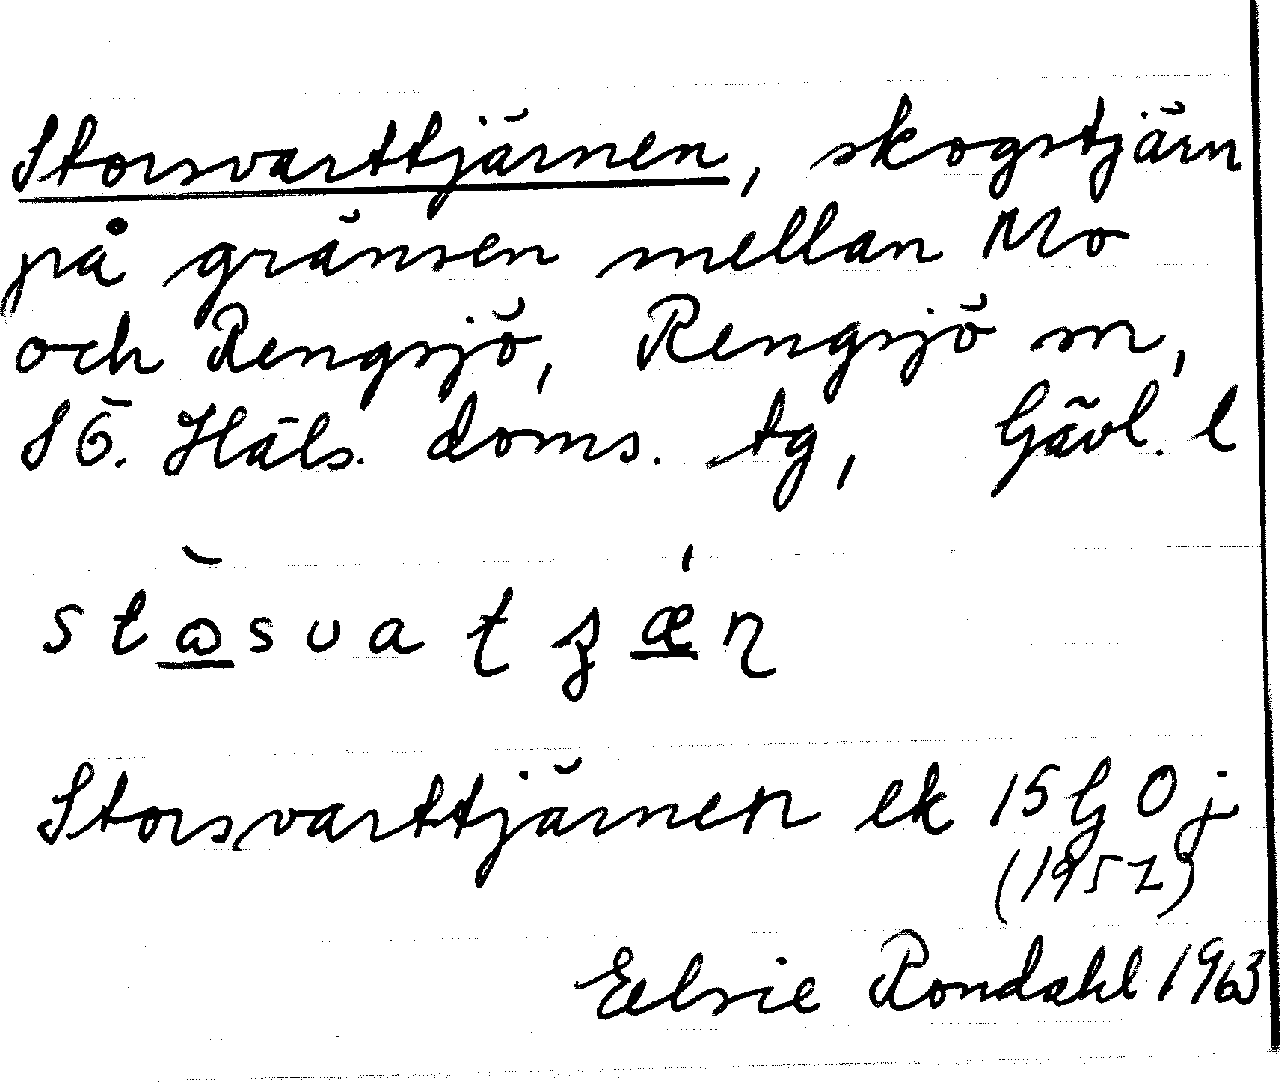 Storsvarttjärnen, skogstjärn
på gränsen mellan Mo
och Rengsjö, Rengsjö sn,
SÖ. Häls. doms. tg, Gävl. l
Storsvarttjärnen ek 15 G 0 j
(1957)
Elsie Rondahl 1963